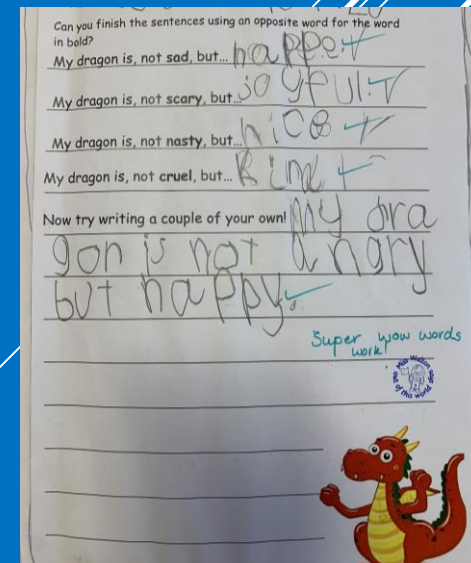 Can you finish the sentences using an opposite word for the word
in bold?
My dragon is, not sad, but... happe.
My dragon is, not scary, but... joyful.
My dragon is, not nasty, but... nice
My dragon is, not cruel, but... kind
Now try writing a couple of your own! My dra
gon is not angry
but happy.
Super wow words
work!
Miss Walton says
out of this world